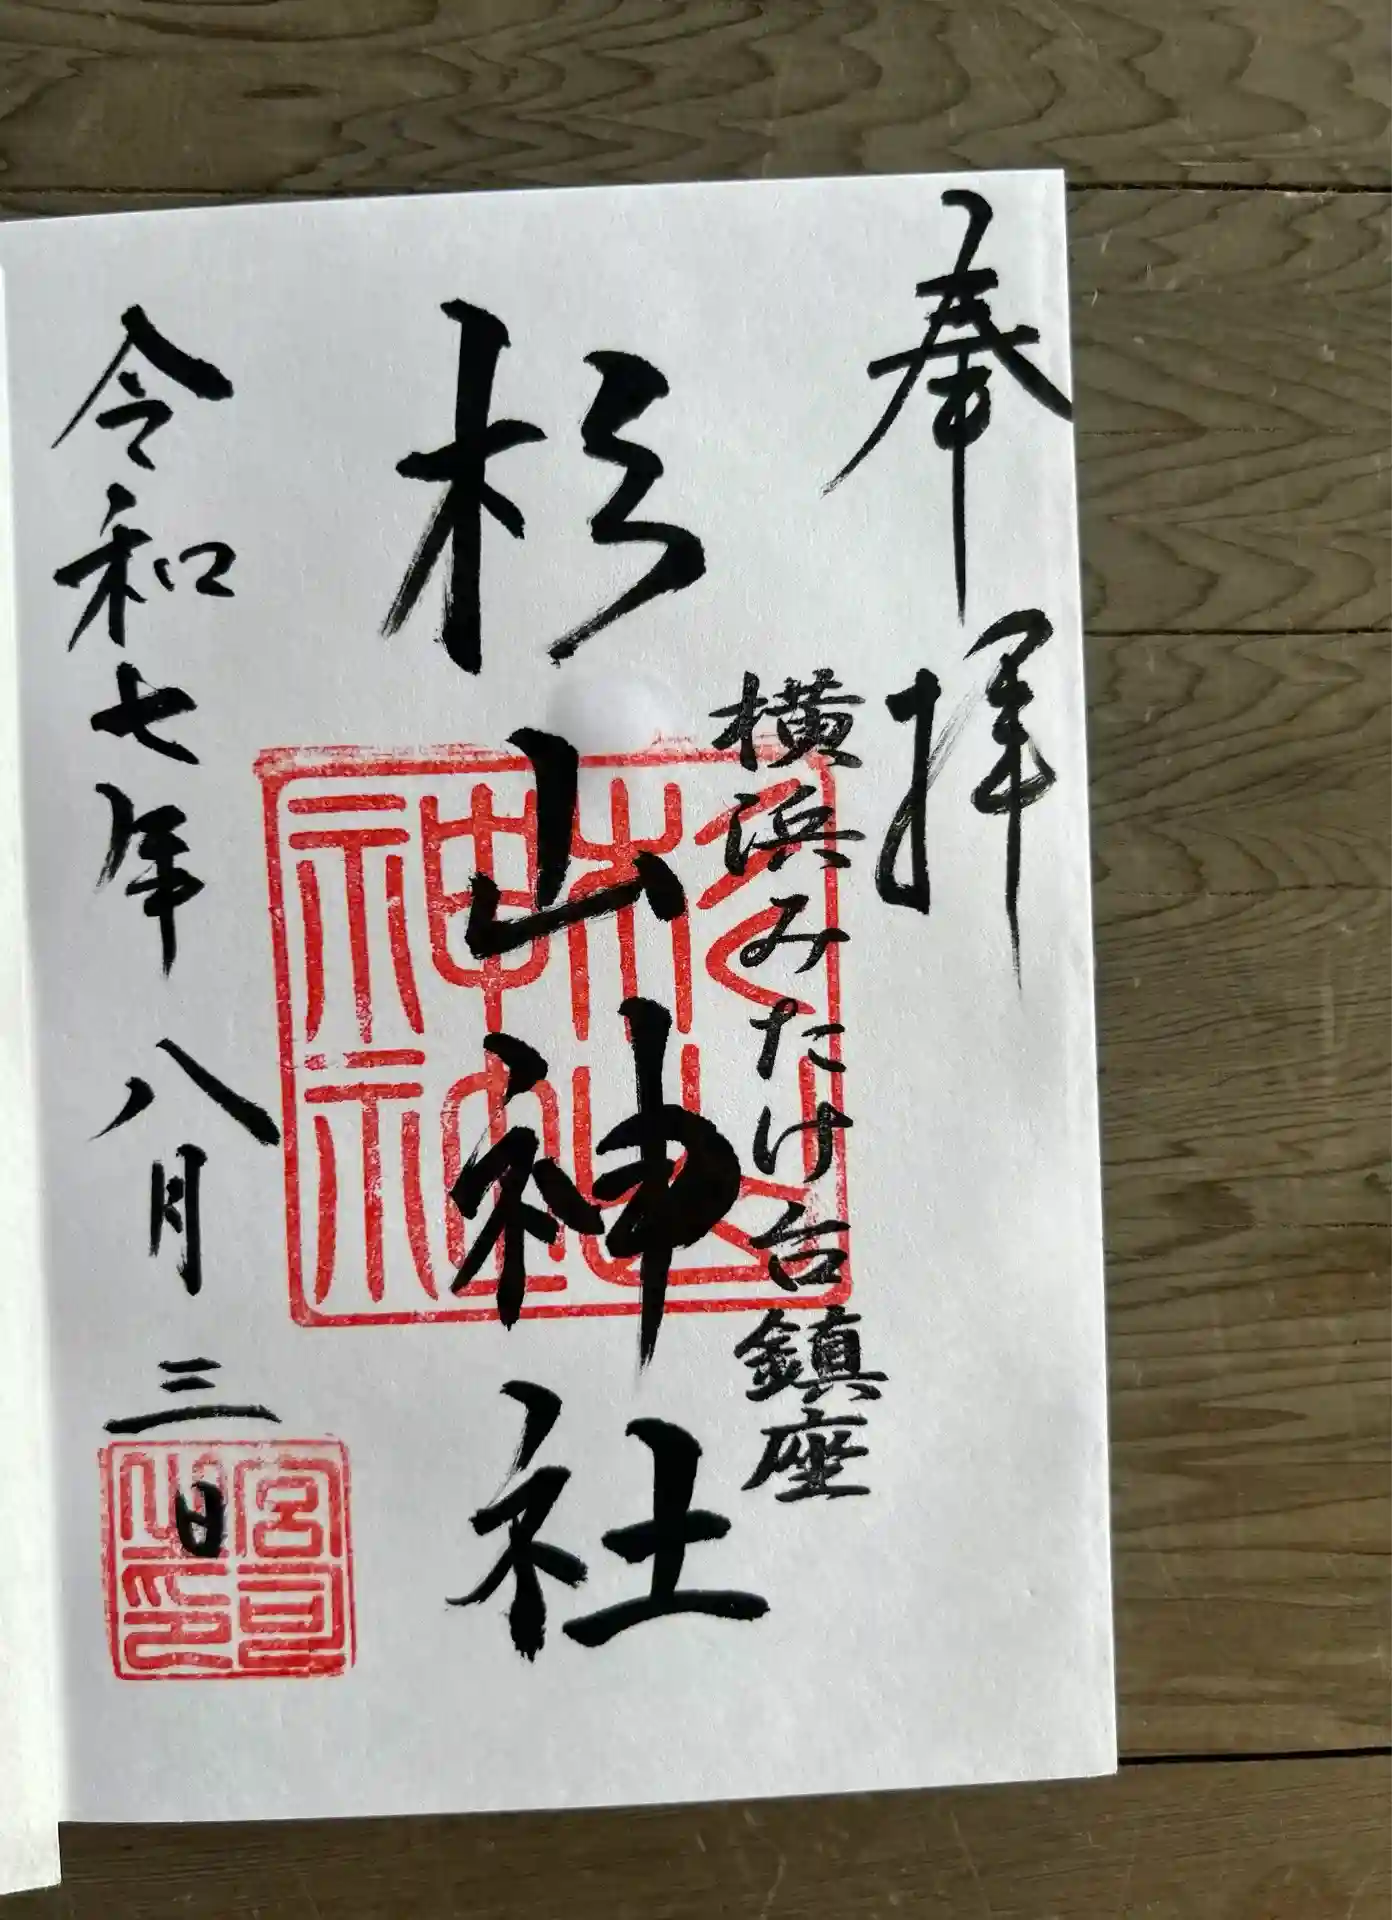 奉拝
横浜みたけ台鎮座
杉山神社
杉山神社
神社
令和七年八月三日
宮司之印